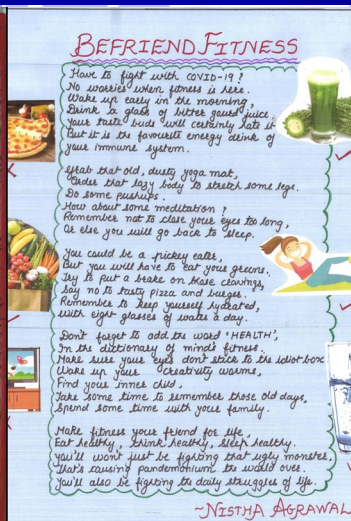 BEFRIEND FITNESS
Have to fight with COVID-19?
No worries when fitness is here.
Wake up early in the morning,
Drink a glass of bitter gourd juice,
Your taste buds will certainly hate it
But it is the favourite energy drink of
your immune system.
Grab that old, dusty yoga mat,
Order that lazy body to stretch some legs.
Do some pushups.
How about some meditation?
Remember not to close your eyes too long,
Or else you will go back to sleep.
You could be a pickey eater,
But you will have to eat your greens.
Try to put a brake on those cravings,
Say no to tasty pizza and burger.
Remember to keep yourself hydrated,
with eight glasses of water a day.
Don't forget to add the word 'HEALTH',
In the dictionary of mind fitness.
Make sure your eyes don't stick to the idiot box
Wake up your creativity worms,
Find your inner child,
Take some time to remember those old days,
Spend some time with your family.
Make fitness your friend for life,
Eat healthy, think healthy, sleep healthy.
You'll won't just be fighting that ugly monster,
That's causing pandemonium the world over.
You'll also be fighting the daily struggles of life.
~NISTHA AGRAWAL